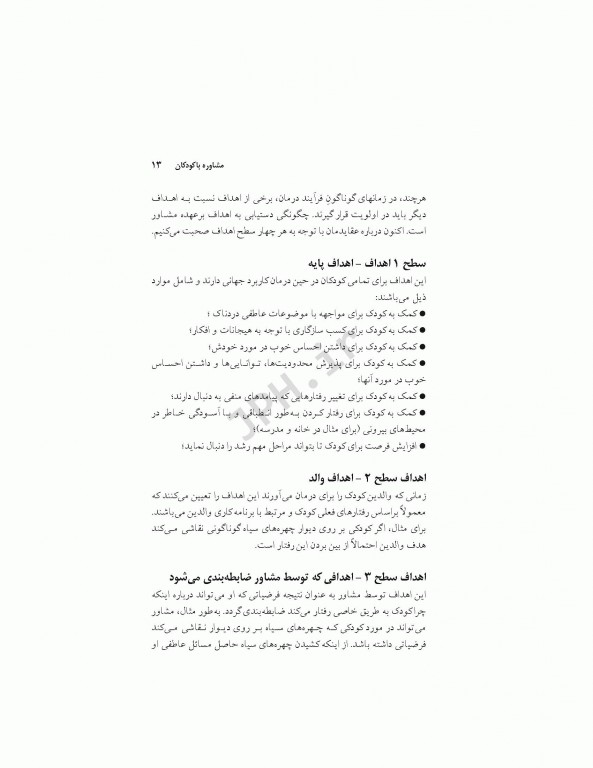 مشاوره با کودکان ۱۳
هرچند، در زمانهای گوناگونِ فرآیند درمان، برخی از اهداف نسبت به اهداف
دیگر باید در اولویت قرار گیرند. چگونگی دستیابی به اهداف برعهده مشاور
است. اکنون درباره عقایدمان با توجه به هر چهار سطح اهداف صحبت می‌کنیم.
سطح ۱ اهداف – اهداف پایه
این اهداف برای تمامی کودکان در حین درمان کاربرد جهانی دارند و شامل موارد
ذیل می‌باشند:
● کمک به کودک برای مواجهه با موضوعات عاطفی دردناک ؛
● کمک به کودک برای کسب سازگاری با توجه به هیجانات و افکار؛
● کمک به کودک برای داشتن احساس خوب در مورد خودش؛
● کمک به کودک برای پذیرش محدودیت‌ها، توانایی‌ها و داشتن احساس
خوب در مورد آنها؛
● کمک به کودک برای تغییر رفتارهایی که پیامدهای منفی به دنبال دارند؛
● کمک به کودک برای رفتار کردن به‌طور انطباقی و با آسودگی خاطر در
محیط‌های بیرونی (برای مثال در خانه و مدرسه)؛
● افزایش فرصت برای کودک تا بتواند مراحل مهم رشد را دنبال نماید؛
JPH.ir
اهداف سطح ۲ – اهداف والد
زمانی که والدین کودک را برای درمان می‌آورند این اهداف را تعیین می‌کنند که
معمولاً براساس رفتارهای فعلی کودک و مرتبط با برنامه کاری والدین می‌باشند.
برای مثال، اگر کودکی بر روی دیوار چهره‌های سیاه گوناگونی نقاشی می‌کند
هدف والدین احتمالاً از بین بردن این رفتار است.
اهداف سطح ۳ – اهدافی که توسط مشاور ضابطه‌بندی می‌شود
این اهداف توسط مشاور به عنوان نتیجه فرضیاتی که او می‌تواند درباره اینکه
چرا کودک به طریق خاصی رفتار می‌کند ضابطه‌بندی گردد. به‌طور مثال، مشاور
می‌تواند در مورد کودکی که چهره‌های سیاه بر روی دیوار نقاشی می‌کند
فرضیاتی داشته باشد. از اینکه کشیدن چهره‌های سیاه حاصل مسائل عاطفی او